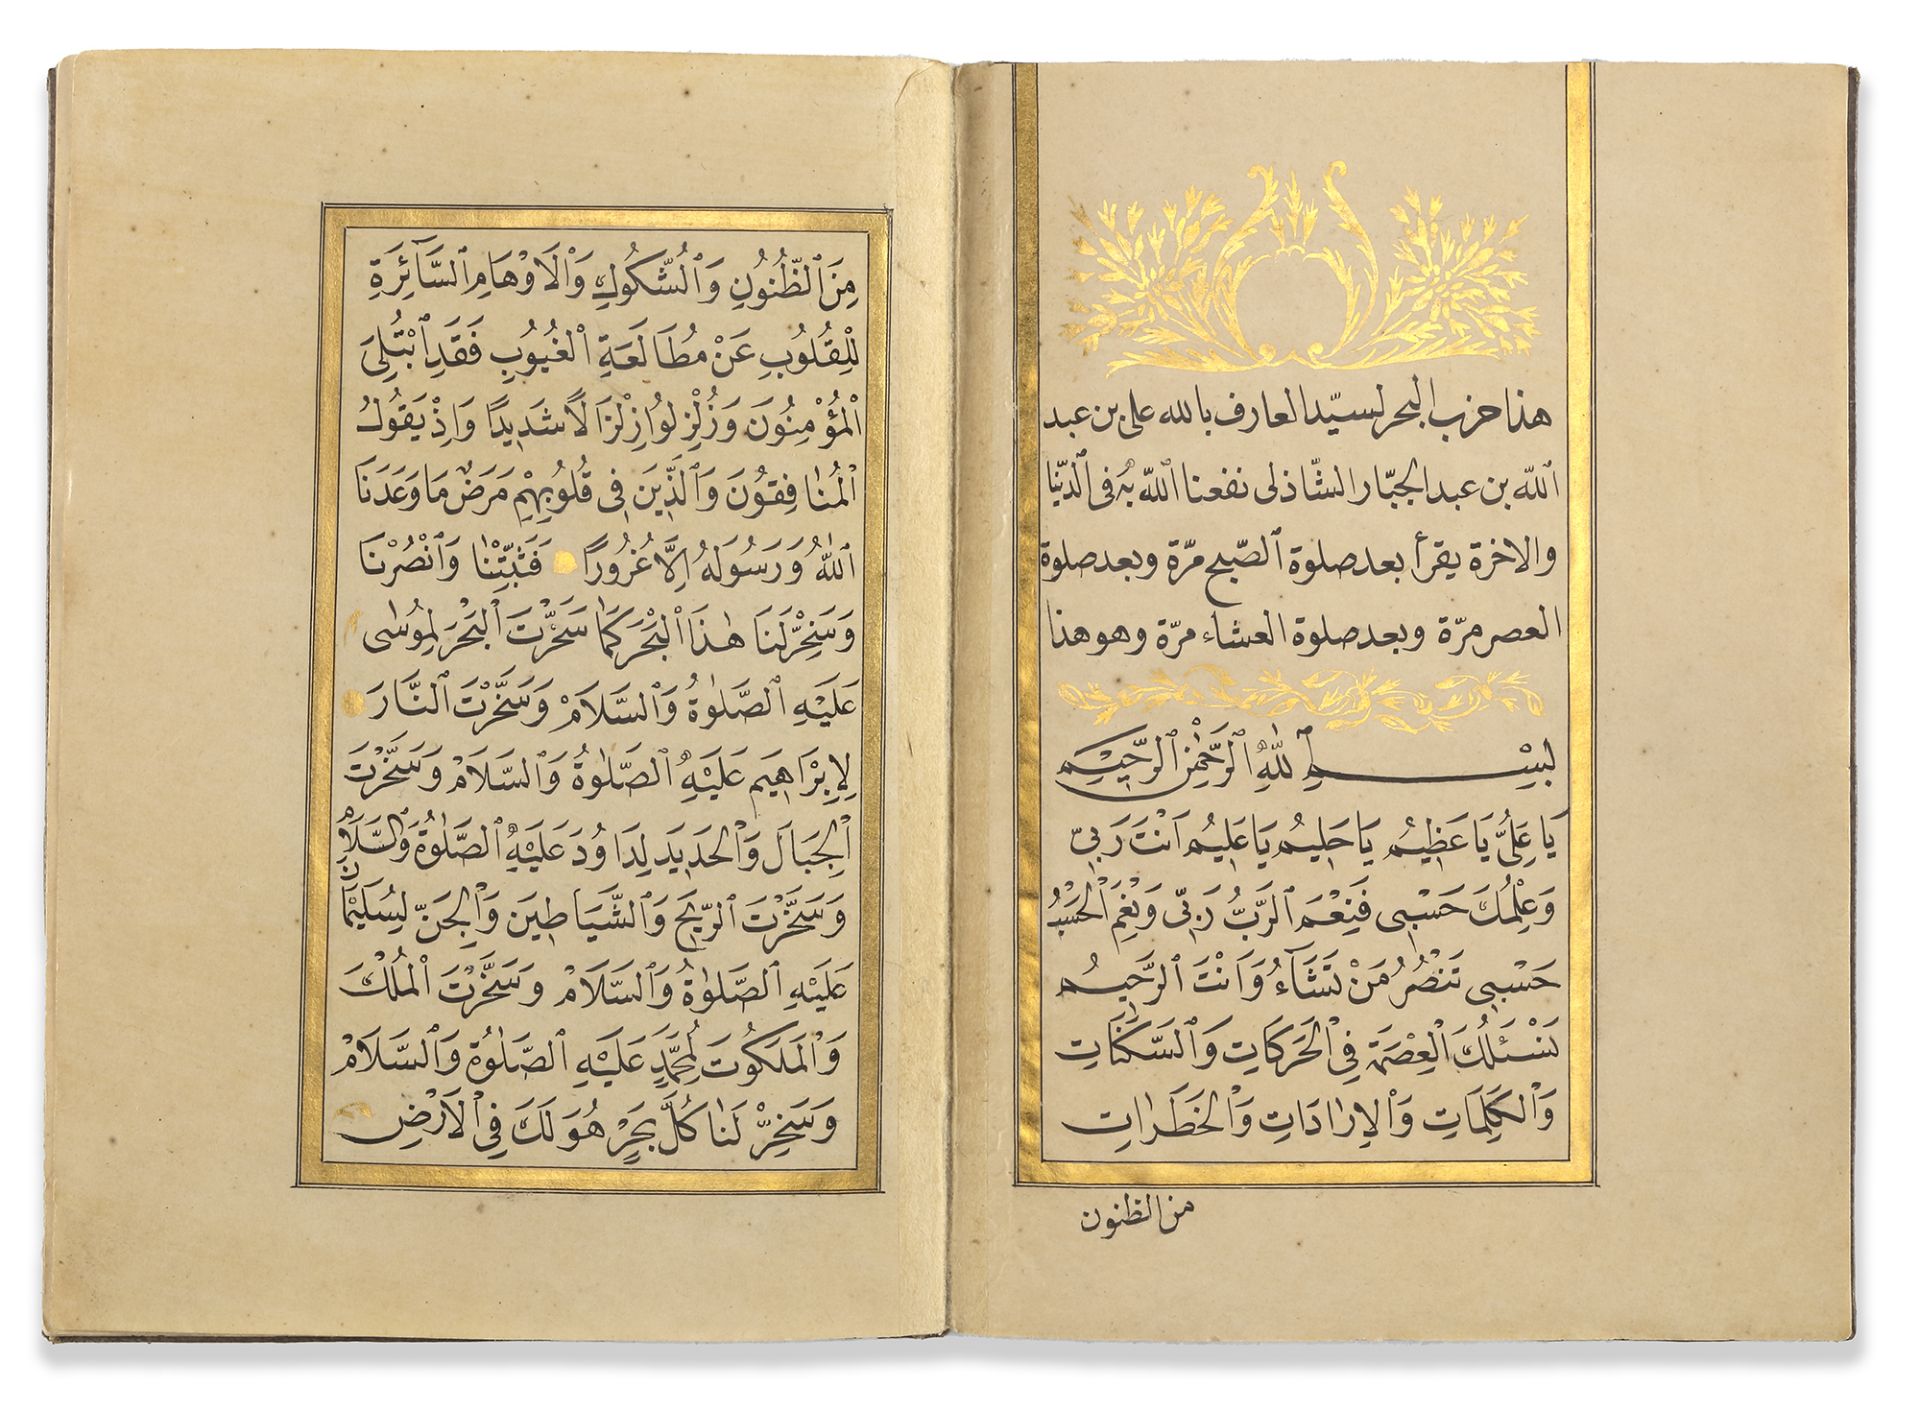 هذا حزب البحر لسيّد العارف بالله على بن عبد
الله بن عبد الجبّار الشّاذلى نفعنا الله به فى الدّنيا
والاخرة يقرأ بعد صلوة الصّبح مرّة وبعد صلوة
العصر مرّة وبعد صلوة العشاء مرّة وهو هذا
بِسْمِ اللهِ الرَّحْمٰنِ الرَّحِيمِ
يَا عَلِىُّ يَا عَظِيمُ يَا حَلِيمُ يَا عَلِيمُ اَنْتَ رَبِّى
وَعِلْمُكَ حَسْبِى فَنِعْمَ الرَّبُّ رَبِّى وَنِعْمَ الْحَسْبُ
حَسْبِى تَنْصُرُ مَنْ تَشَآءُ وَاَنْتَ الرَّحِيمُ
نَسْئَلُكَ الْعِصْمَةَ فِى الْحَرَكَاتِ وَالسَّكَنَاتِ
وَالْكَلِمَاتِ وَالْاِرَادَاتِ وَالْخَطَرَاتِ
من الظنون
مِنَ الظُّنُونِ وَالشُّكُوكِ وَالْاَوْهَامِ السَّآئِرَةِ
لِلْقُلُوبِ عَنْ مُطَالَعَةِ الْغُيُوبِ فَقَدِ ابْتُلِىَ
الْمُؤْمِنُونَ وَزُلْزِلُوا زِلْزَالًا شَدِيدًا وَاِذْ يَقُولُ
الْمُنَافِقُونَ وَالَّذِينَ فِى قُلُوبِهِمْ مَرَضٌ مَا وَعَدَنَا
اللهُ وَرَسُولُهُ اِلَّا غُرُورًا فَثَبِّتْنَا وَانْصُرْنَا
وَسَخِّرْ لَنَا هٰذَا الْبَحْرَ كَمَا سَخَّرْتَ الْبَحْرَ لِمُوسٰى
عَلَيْهِ الصَّلٰوةُ وَالسَّلَامْ وَسَخَّرْتَ النَّارَ
لِاِبْرَاهِيمَ عَلَيْهِ الصَّلٰوةُ وَالسَّلَامْ وَسَخَّرْتَ
الْجِبَالَ وَالْحَدِيدَ لِدَاوُدَ عَلَيْهِ الصَّلٰوةُ وَالسَّلَامْ
وَسَخَّرْتَ الرِّيحَ وَالشَّيَاطِينَ وَالْجِنَّ لِسُلَيْمَانَ
عَلَيْهِ الصَّلٰوةُ وَالسَّلَامْ وَسَخَّرْتَ الْمُلْكَ
وَالْمَلَكُوتَ لِمُحَمَّدٍ عَلَيْهِ الصَّلٰوةُ وَالسَّلَامْ
وَسَخِّرْ لَنَا كُلَّ بَحْرٍ هُوَ لَكَ فِى الْاَرْضِ